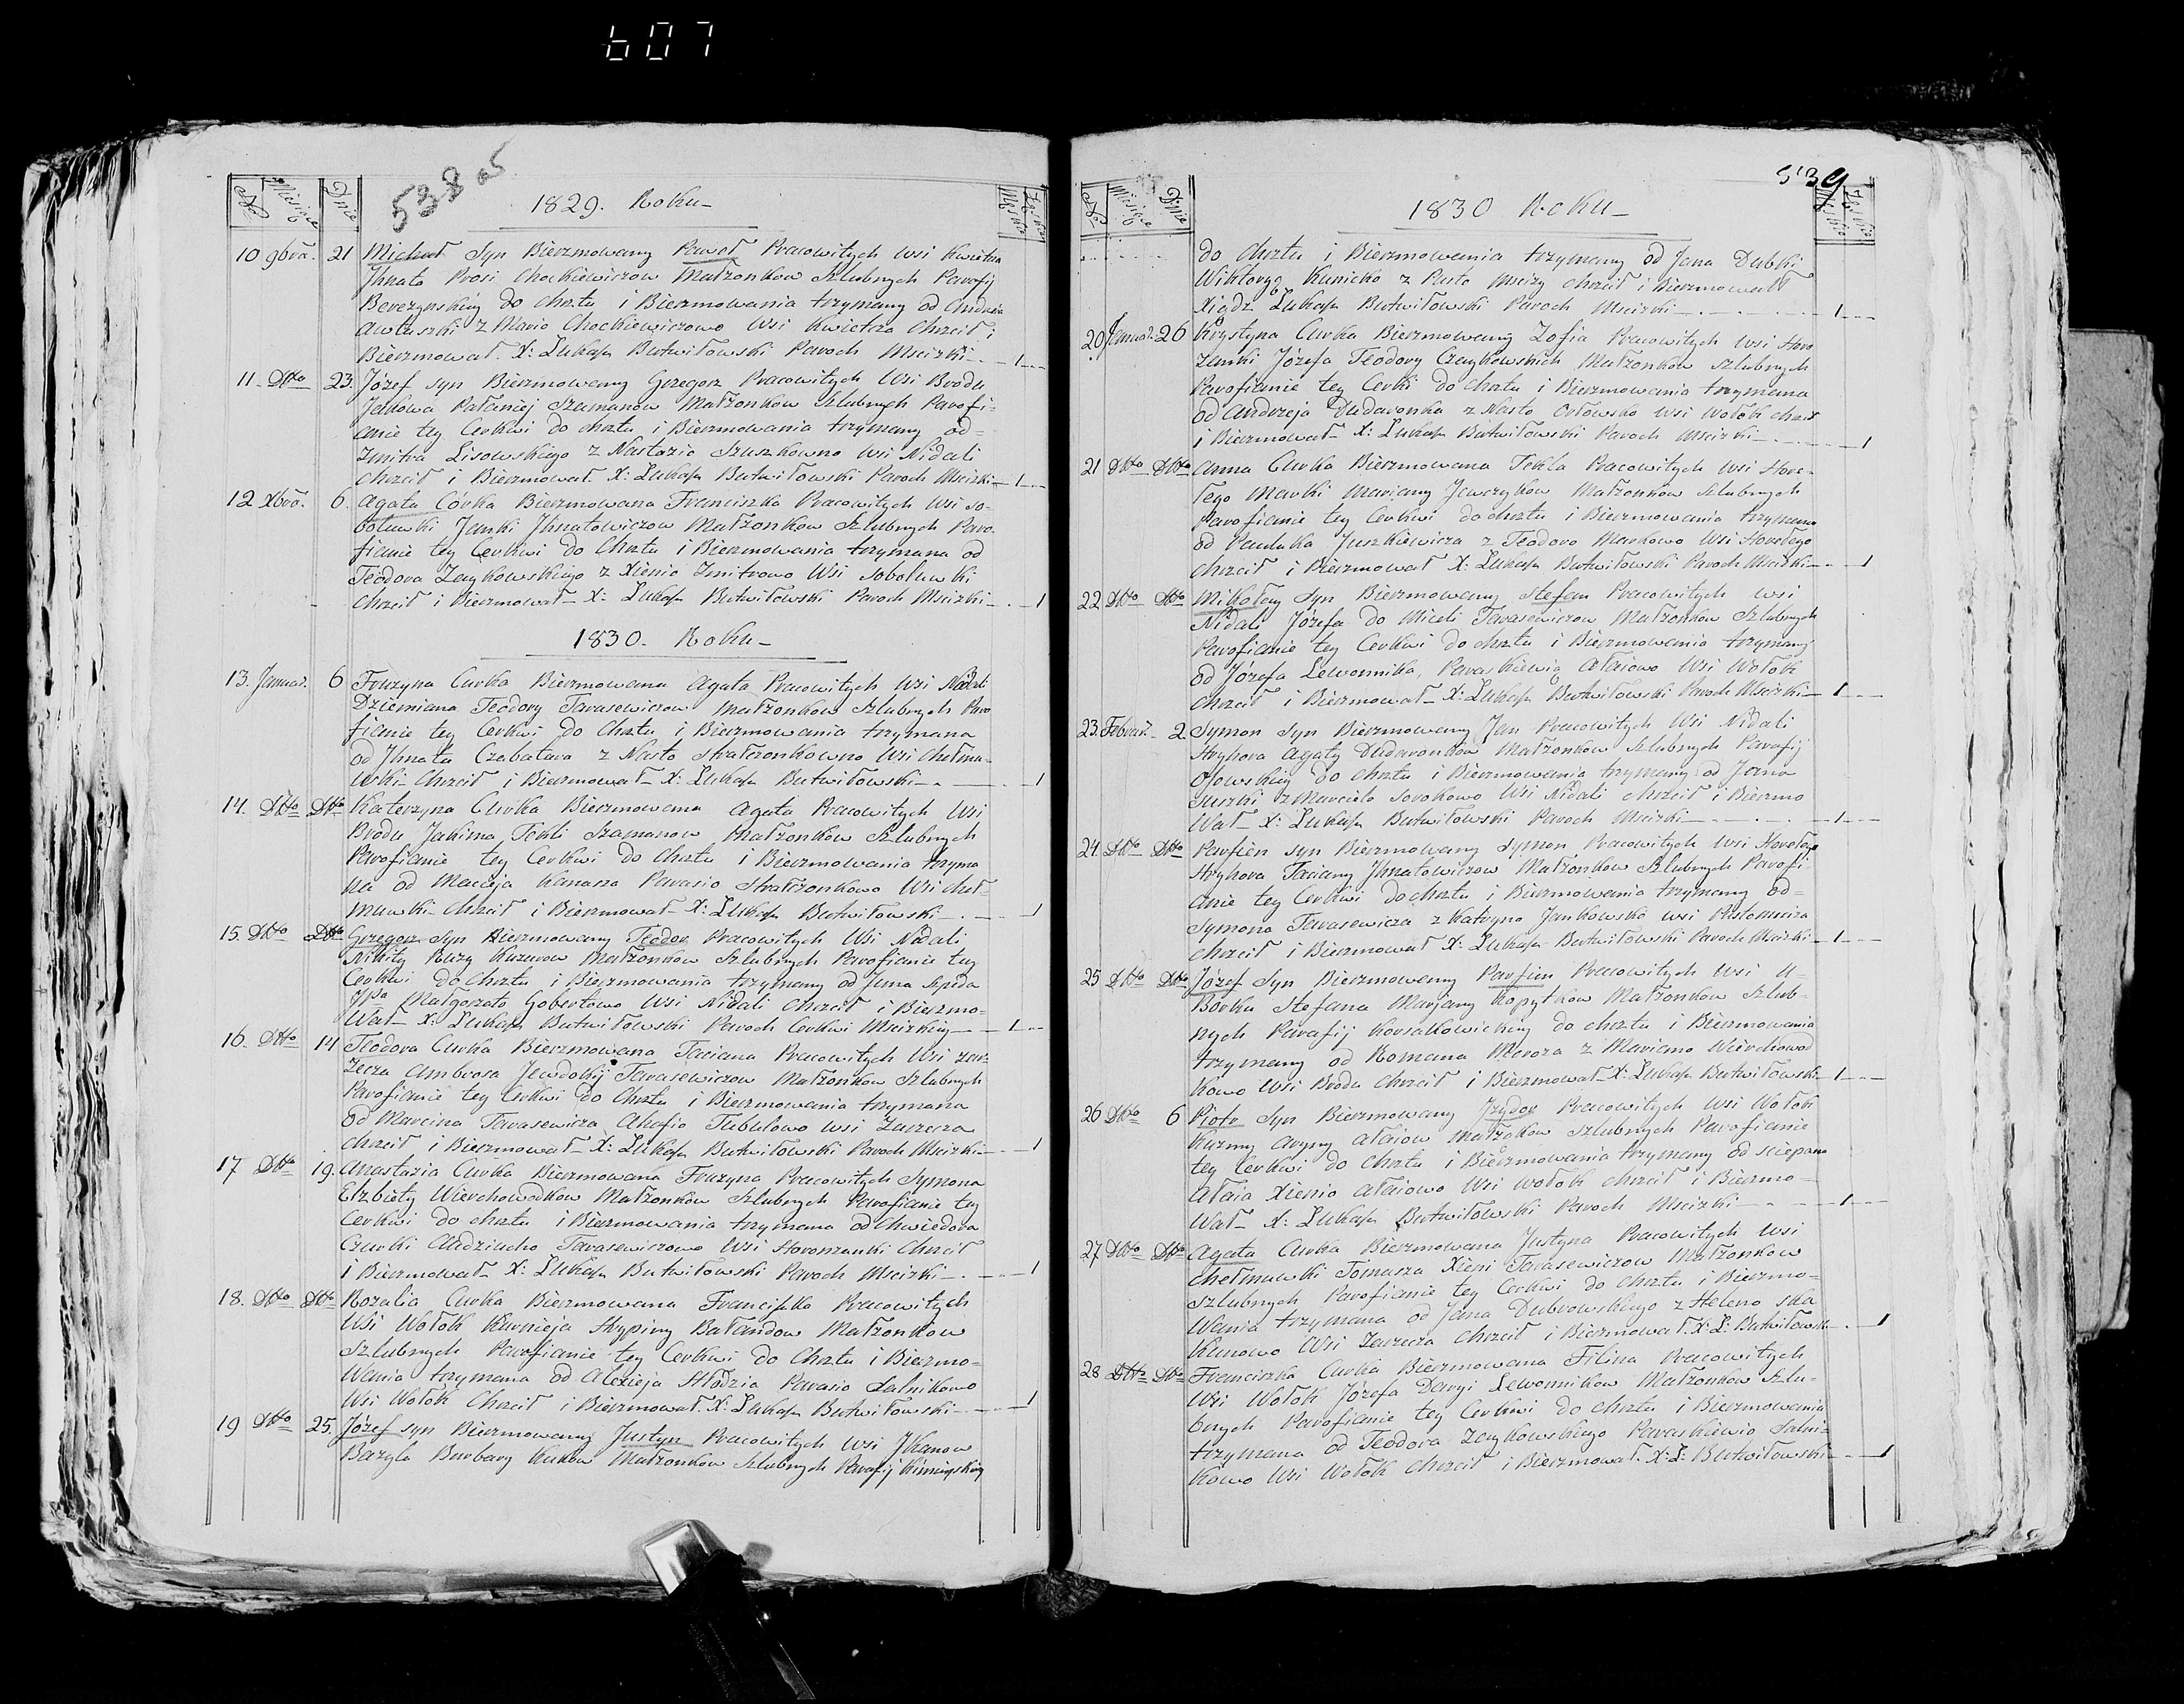 607
538 об
№ Miesiąc Dnie
1829. Roku
10 9bra. 21 Michał Syn Bierzmowany Paweł Pracowitych wsi Kwietcza
Ihnata Prosi Chockiewiczow Małzonków Szlubnych Parafij
Berezynskiey do chrztu i Bierzmowania trzymany od Andreia
Awłuszki z Mario Chockiewiczowo Wsi Kwietcza Chrzcił i
Bierzmował. X: Łukasz Butwiłowski Paroch Mscizki 1
11. Dtto 23. Józef syn Bierzmowany Grzegorz Pracowitych Wsi Brodu
Jakowa Pałaniej Szamanow Małzonków Szlubnych Parofi-
anie tey Cerkwi do chrztu i Bierzmowania trzymany od
Zmitra Lisowskiego z Nastazio Szuszkowno wsi Nidali
chrzcił i Bierzmował. X: Łukasz Butwiłowski Paroch Mscizki 1
12 Xbra. 6. Agata Córka Bierzmowana Franciszka Pracowitych wsi So-
boluwki Janki Ihnatowiczow Małzonków Szlubnych Paro-
fianie tey Cerkwi do Chrztu i Bierzmowania trzymana od
Teodora Zaykowskiego z Xienio Zmitrowo Wsi Soboluwki
Chrzcił i Bierzmował X: Łukasz Butwiłowski Paroch Mscizki 1
1830. Roku
13. Januar. 6 Fruzyna Curka Bierzmowana Agata Pracowitych wsi Nidali
Dziemiana Teodory Tarasewiczow Małzonków Szlubnych Paro
fianie tey Cerkwi do Chrztu i Bierzmowania trzymana
od Ihnata Czabatara z Nasto Strałczonkowno Wsi Chełma-
uski Chrzcił i Bierzmował X: Łukasz Butwiłowski 1
14. Dtto Dtto Katerzyna Curka Bierzmowana Agata Pracowitych Wsi
Brodu Jakima Tekli Szamanow Małzonków Szlubnych
Parofianie tey Cerkwi do Chrztu i Bierzmowania trzyma
na od Macieja Kanasza Parasio Strałczonkowo Wsi Cheł-
mauwki Chrzcił i Bierzmował X: Łukasz Butwiłowski 1
15. Dtto Dtto Grzegorz Syn Bierzmowany Teodor Pracowitych Wsi Nidali
Nikity Ruzy Kurerow Małzonków Szlubnych Parofianie tey
Cerkwi do Chrztu i Bierzmowania trzymany od Jana
Małgorzato Gobertowo Wsi Nidali Chrzcił i Bierzmo-
wał X: Łukasz Butwiłowski Paroch Cerkwi Mscizkiey 1
16. Dtto 14 Teodora Curka Bierzmowana Taciana Pracowitych Wsi Zau-
Zecza Ambrosa Jewdokij Tarasewiczow Małzonkow Szlubnych
Parofianie tey Cerkwi do Chrztu i Bierzmowania trzymana
od Marcina Tarasewicza Ahafio Tubulowo wsi Zarzecza
chrzcił i Bierzmował X: Łukasz Butwiłowski Paroch Mscizki 1
17 Dtto 19. Anastazia Curka Bierzmowana Fruzyna Pracowitych Symona
Elzbiety Wierchowodkow Małzonków Szlubnych Parofianie tey
Cerkwi do chrztu i Bierzmowania trzymana od Chwiedora
Czurki Audziucho Tarasewiczowo Wsi Horonzanki Chrzcił
i Bierzmował X: Łukasz Butwiłowski Paroch Mscizki 1
18. Dtto Dtto Rozalia Curka Bierzmowana Franciszka Pracowitych
Wsi Wołok Karnieja Hrypiny Bałandow Małzonkow
Szlubnych Parofianie tey Cerkwi do Chrztu i Bierzmo-
wania trzymana od Alexieja Młodzia Parasio Salnikowo
Wsi Wołok Chrzcił i Bierzmował. X: Łukasz Butwiłowski 1
19 Dtto 25. Józef syn Bierzmowany Justyn Pracowitych Wsi Jkanow
Bazyla Barbary Kukow Małzonkow Szlubnych Parafij
539
№ Miesiąc Dnie
1830 Roku
do Chrztu i Bierzmowania trzymany od Jana Dubki
Wiktoryo Kunicko z Pusto Mscizy chrzcił i Bierzmował
Xiądz Łukasz Butwiłowski Paroch Mscizki 1
20 Januar. 26 Krystyna Curka Bierzmowany Zofia Pracowitych Wsi Horo
Zanki Józefa Teodory Czaykowskich Małzonków Szlubnych
Parofianie tey Cerki do Chrztu i Bierzmowania trzymana
od Andrzeja Dudaronka z Nasto Orłowsko wsi Wołok chrzcił
i Bierzmował X: Łukasz Butwiłowski Paroch Mscizki 1
21 Dtto Dtto Anna Curka Bierzmowana Tekla Pracowitych Wsi Hore-
łego Marki Marjany Jewczykow Małzonkow Szlubnych
Parofianie tey Cerkwi do chrztu i Bierzmowania trzymana
od Pauluka Juszkiewicza z Teodoro Markowo Wsi Horełego
Chrzcił i Bierzmował X: Łukasz Butwiłowski Paroch Mscizki 1
22 Dtto Dtto Mikołay Syn Bierzmowany Stefan Pracowitych wsi
Nidali Józefa do Micli Tarasewiczow Małzonków Szlubnych
Parofianie tey Cerkwi do chrztu i Bierzmowania trzymany
od Józefa Lewonnika, Paraskiewią Ałaiowo Wsi Wołok
Chrzcił i Bierzmował X: Łukasz Butwiłowski Paroch Mscizki 1
23. Febrar. 2. Symon Syn Bierzmowany Jan Pracowitych Wsi Nidali
Hryhora Agaty Dudaronkow Małzonkow Szlubnych Parafij
do chrztu i Bierzmowania trzymany od Jana
Suszki z Marcielo Sorokowo Wsi Nidali chrzcił i Bierzmo
Wał X: Łukasz Butwiłowski Paroch Mscizki 1
24. Dtto Dtto Parfien syn Bierzmowany Symon Pracowitych Wsi Horełego
Hryhora Taciany Ihnatowiczow Małzonkow Szlubnych Parofi-
anie tey Cerkwi do chrztu i Bierzmowania trzymany od
Symona Tarasewicza z Katryno Jankowsko wsi Pustomściza
chrzcił i Bierzmował X: Łukasz Butwiłowski Paroch Mscizki 1
25 Dtto Dtto Józef Syn Bierzmowany Parfien Pracowitych Wsi U-
Borku Stefana Marjany Kopytkow Małzonkow Szlub-
nych Parafij Korsakowickiey do chrztu i Bierzmowania
trzymany od Romana Moroza z Mariano Wierchowod
Kowo Wsi Brodu Chrzcił i Bierzmował X: Łukasz Butwiłowski 1
26 Dtto 6 Piotr Syn Bierzmowany Jzydor Pracowitych wsi Wołok
Kuzmy Aryny Ałaiow Małząkow Szlubnych Parofianie
tey Cerkwi do Chrztu i Bierzmowania trzymany od Sciepana
Ałaia Xienio Ałaiowo Wsi Wołok chrzcił i Bierzmo-
Wał X: Łukasz Butwiłowski Paroch Mscizki 1
27 Dtto Dtto Agata Curka Bierzmowana Justyna Pracowitych wsi
Chełmuwki Tomasza Xieni Tarasewiczow Małzonkow
Szlubnych Parofianie tey Cerkwi do Chrztu i Bierzmo-
Wania trzymana od Jana Dubrowskiego z Heleno Ska
Kunowo Wsi Zarzecza Chrzcił i Bierzmował. X: Ł: Butwiłowski 1
28 Dtto Dtto Franciszka Curka Bierzmowana Filina Pracowitych
Wsi Wołok Józefa Daryi Lewonnikow Małzonkow Szlu-
bnych Parofianie tey Cerkwi do chrztu i Bierzmowania
trzymana od Teodora Zaykowskiego Paraskiewio Salni-
kowo Wsi Wołok Chrzcił i Bierzmował. X: Ł: Butwiłowski 1